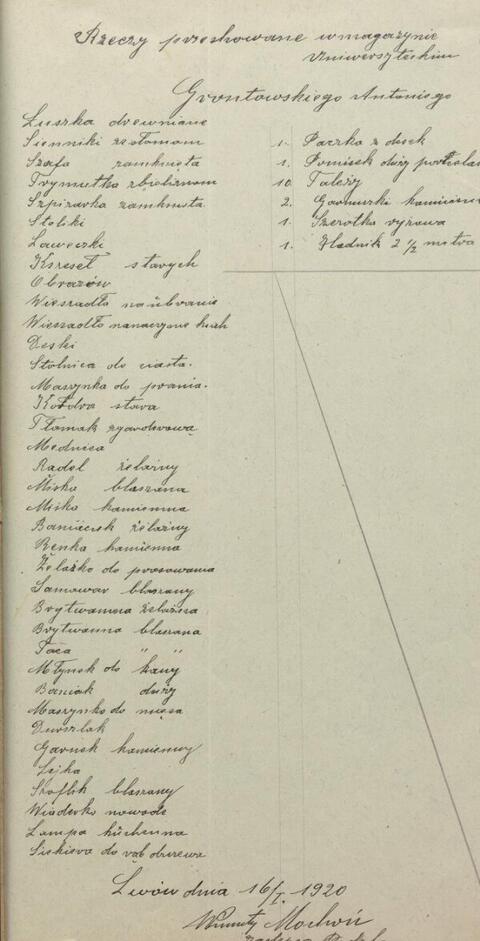 Rzeczy przechowane w magazynie
Uniwersyteckim
Grontowskiego Antoniego
Łuszka drewniane
Sienniki ze słomom
Szafa zamknięta
zbieliznom
Szpizarka zamknięta
Stolski
Ławeczki
Krzeseł starych
Obrazów
Wieszadło na übranie
Wieszadło nanaczyne kuch
Deski
Stolnica do ciasta.
Maszynka do prania.
Kołdra stara
Tłomak zgarderobą
Mednica
Radel żelazny
Miska blaszana
Miska kamienna
Baniaczek żelazny
Renka kamienna
Żelazko do prasowania
Samowar blaszany
Brytwanna żelazna
Brytwanna blaszana
Taca " "
Młynek do kawy
Baniak duży
Maszynka do mięsa
Durszlak
Garnek kamienny
Lejka
Szaflik blaszany
Wiaderko nawode
Lampa küchenna
Siekiera do rąb drzewa
1. Paczka z desek
1. Pomisek duży
10 Tależy
2. Garnuszki
1. Szczotka ryzowa
1. Hodnik 2 1/2 metra
Lwów dnia 16/I. 1920
Mochoń